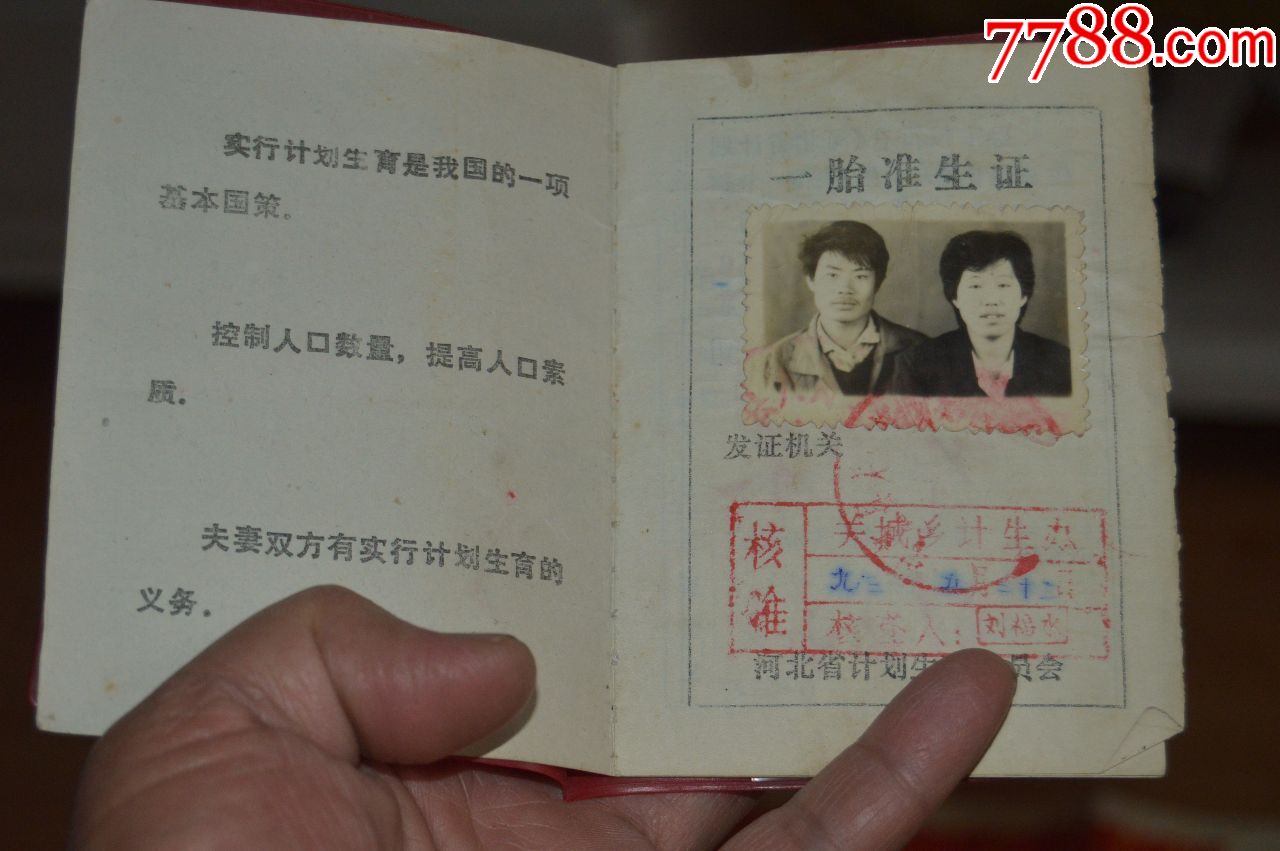 7788.com
实行计划生育是我国的一项
基本国策。
控制人口数量，提高人口素
质。
夫妻双方有实行计划生育的
义务。
一胎准生证
发证机关
核准
关城乡计生办
九二 五月二十二日
核签人：刘
河北省计划生 员会